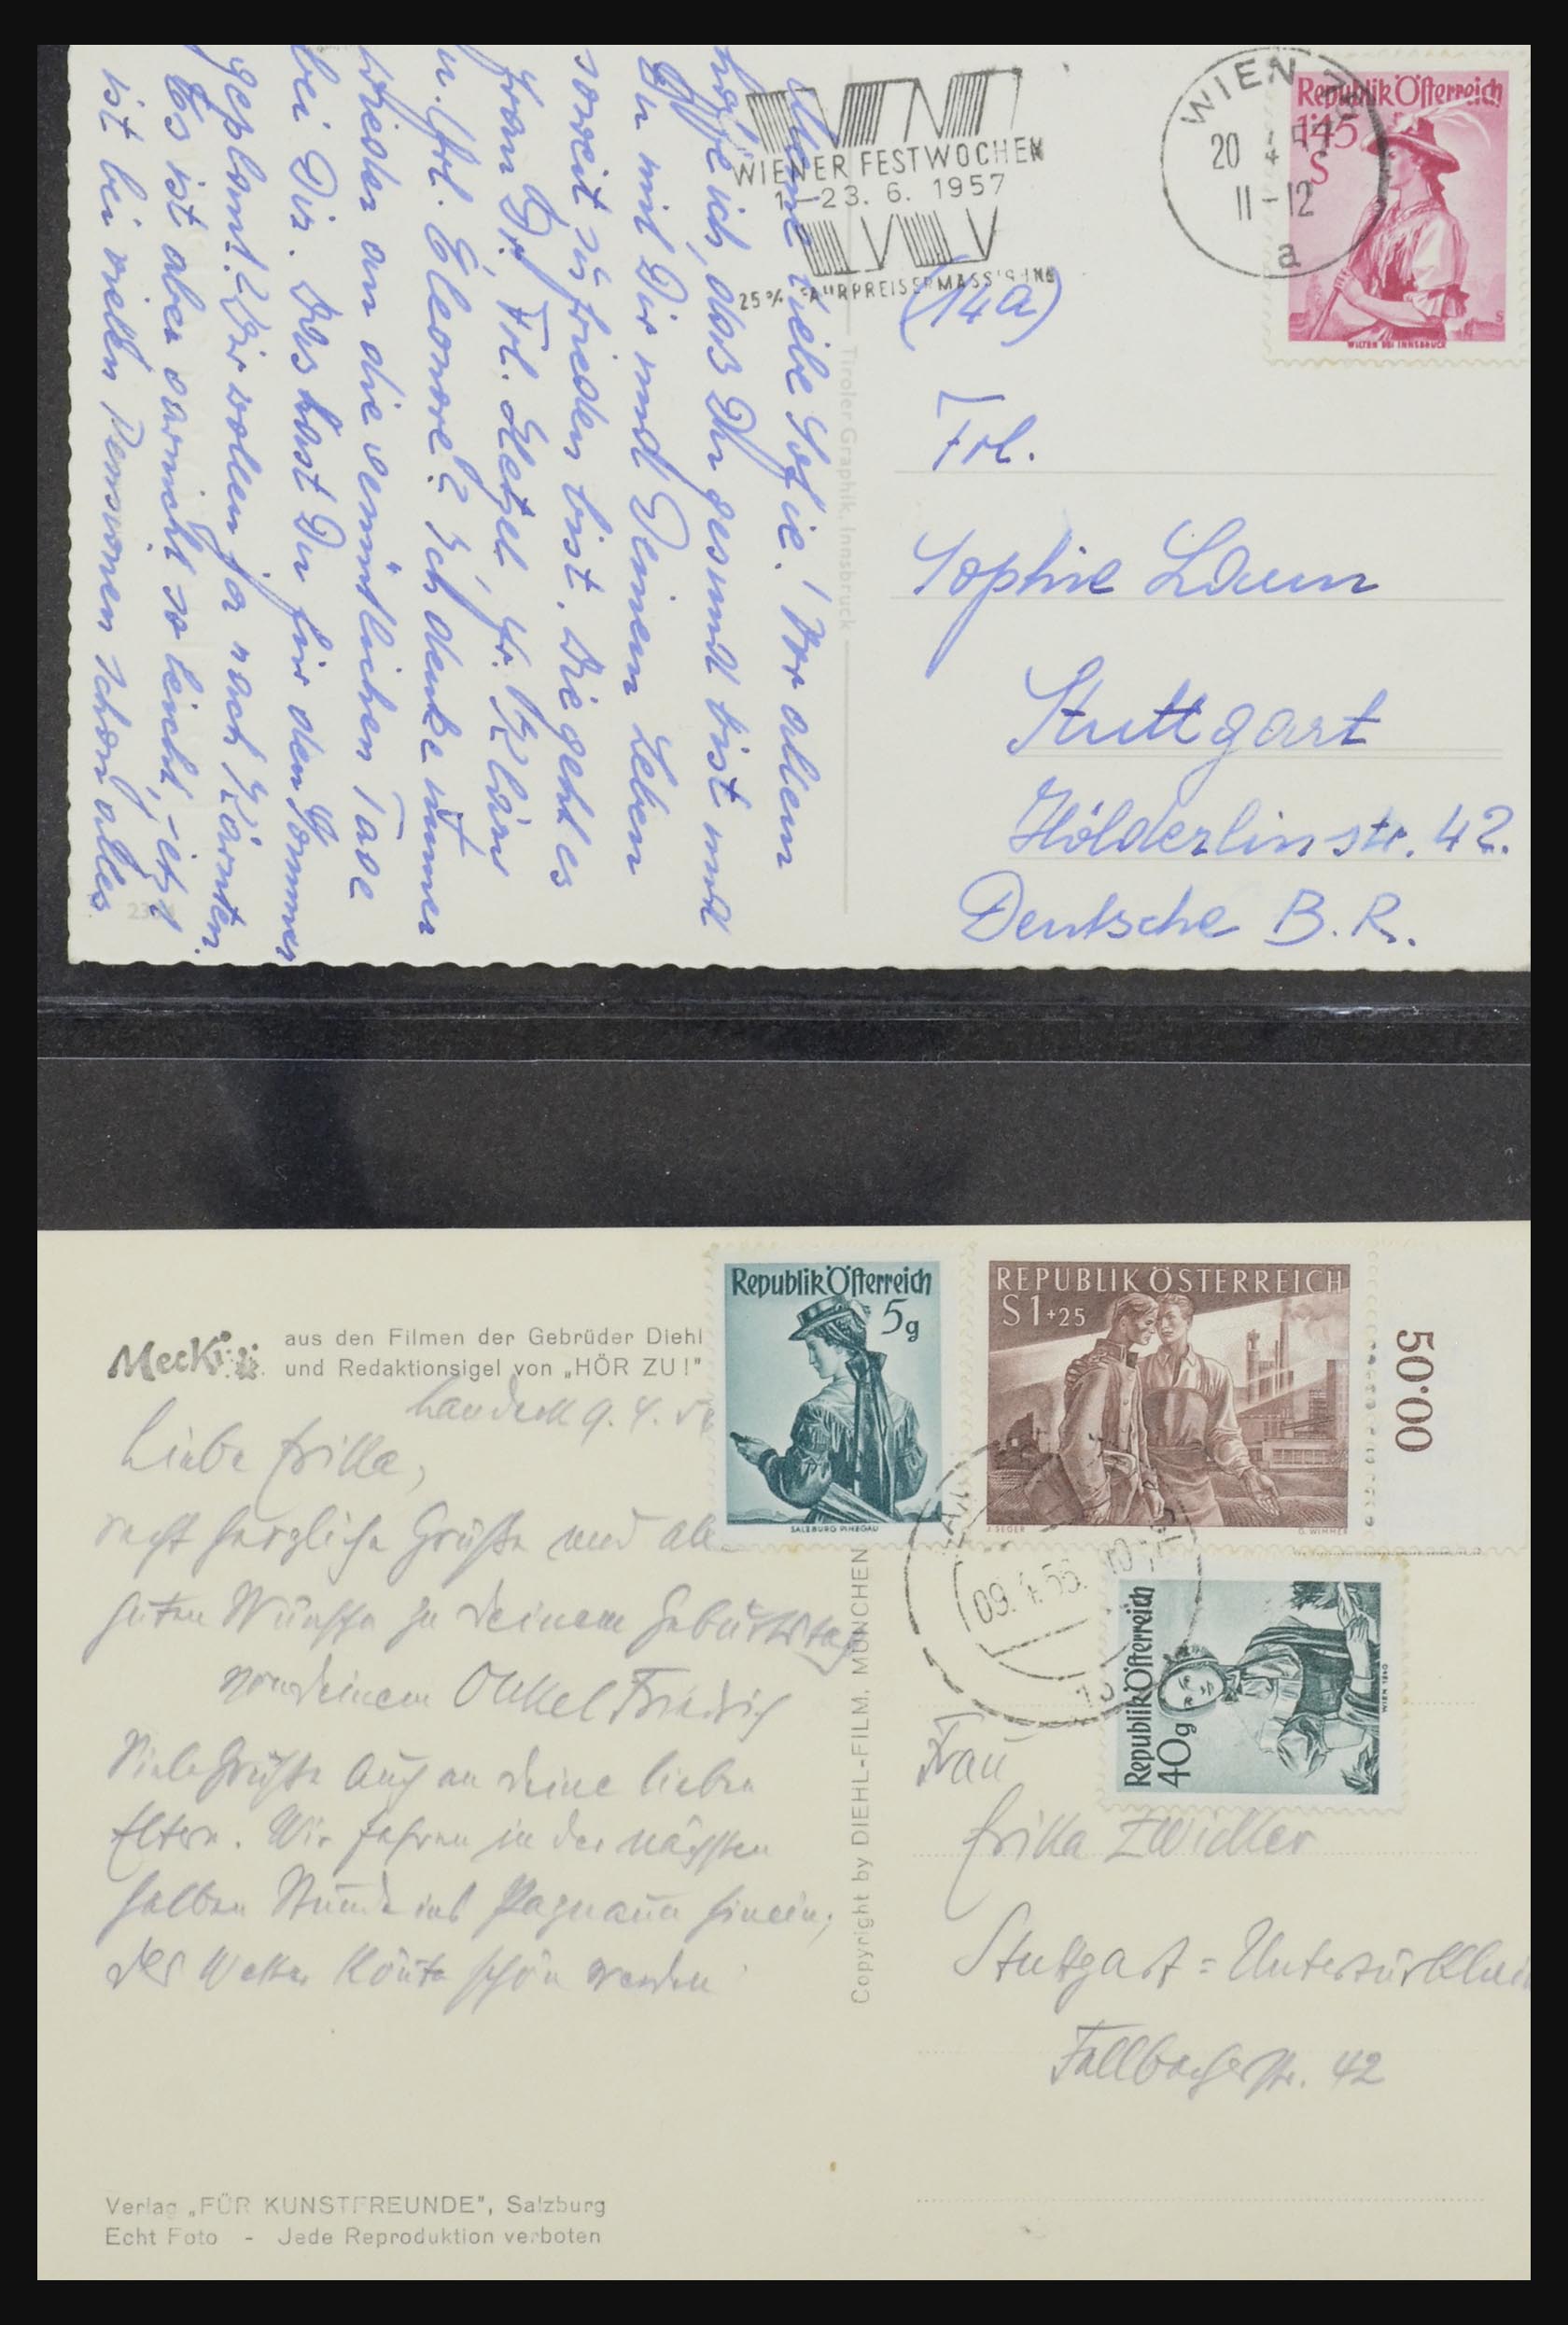 WIENER FESTWOCHEN
1-23. 6. 1957
25% FAHRPREISERMÄSSIGUNG
WIEN
20
11-12
a
Republik Österreich
1·45
S
WILTEN BEI INNSBRUCK
Meine liebe Sofie! Vor allem
hoffe ich, dass Ihr gesund bist und
Du mit Dir und Deinem Leben
soweit zufrieden bist. Wie geht es
Frau Dr. Frl. Hetzel, Fr.
u. Frl. Eleonore? Ich denke immer
wieder an die gemütlichen Tage
bei Dir. Was hast Du für den Sommer
geplant? Wir wollen ja nach Kärnten.
Es ist aber garnicht so leicht, jetzt
ist bei vielen Pensionen schon alles
Tiroler Graphik, Innsbruck
(14a)
Frl.
Sophie Laun
Stuttgart
Hölderlinstr. 42.
Deutsche B. R.
Mecki
aus den Filmen der Gebrüder Diehl
und Redaktionsigel von „HÖR ZU!"
Republik Österreich
5g
SALZBURG PINZGAU
REPUBLIK ÖSTERREICH
S1+25
J. SEGER
G. WIMMER
50·00
Landeck 9. 4.
Liebe Erika,
recht herzliche Grüße und alle
guten Wünsche zu deinem Geburtstag
von deinem Onkel Friedrich
Viele Grüße auch an deine lieben
Eltern. Wir fahren in der nächsten
halben Stunde ins Paznaun hinein;
das Wetter könnte schön werden
09. 4. 55. 10
Republik Österreich
40g
WIEN 1840
Copyright by DIEHL-FILM, MÜNCHEN
Frau
Erika Zwicker
Stuttgart = Untertürkhei
Fellbacherstr. 42
Verlag „FÜR KUNSTFREUNDE", Salzburg
Echt Foto - Jede Reproduktion verboten